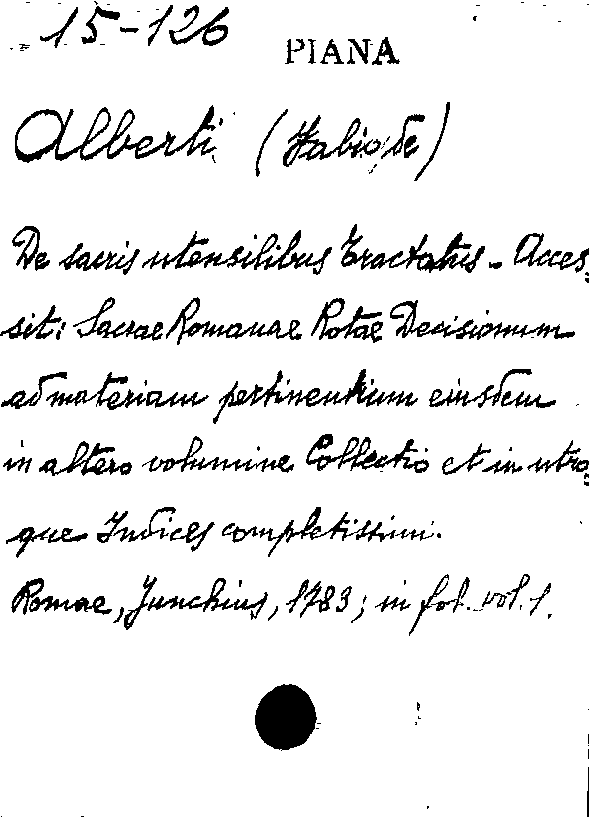 15-126
PIANA
Alberti (Fabio de)
De sacris utensilibus tractatus - Acces
sit: Sacrae Romanae Rotae Decisionum
ad materiam pertinentium eiusdem
in altero volumine Collectio et in utro
que Indices completissimi.
Romae, Junchius, 1783; in fol. vol. 1.